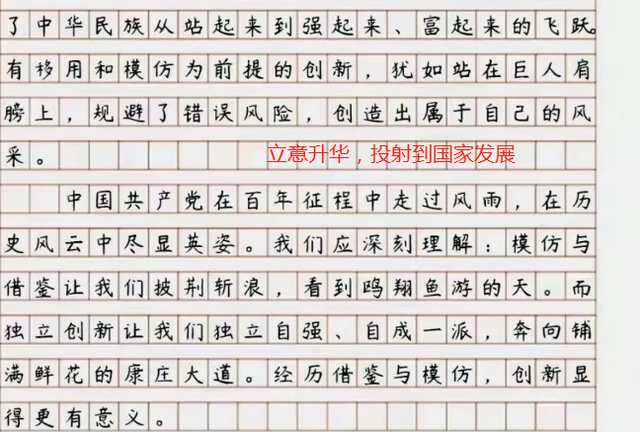 了中华民族从站起来到强起来、富起来的飞跃。
有移用和模仿为前提的创新，犹如站在巨人肩
膀上，规避了错误风险，创造出属于自己的风
采。
立意升华，投射到国家发展
中国共产党在百年征程中走过风雨，在历
史风云中尽显英姿。我们应深刻理解：模仿与
借鉴让我们披荆斩浪，看到鸣翔鱼游的天。而
独立创新让我们独立自强、自成一派，奔向铺
满鲜花的康庄大道。经历借鉴与模仿，创新显
得更有意义。